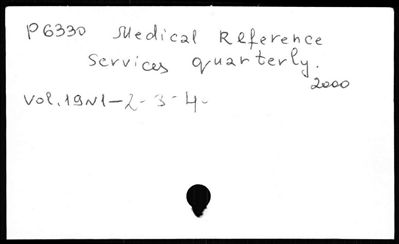 P6330 Medical Reference
Services quarterly.
2000
Vol. 19N1-2-3-4-